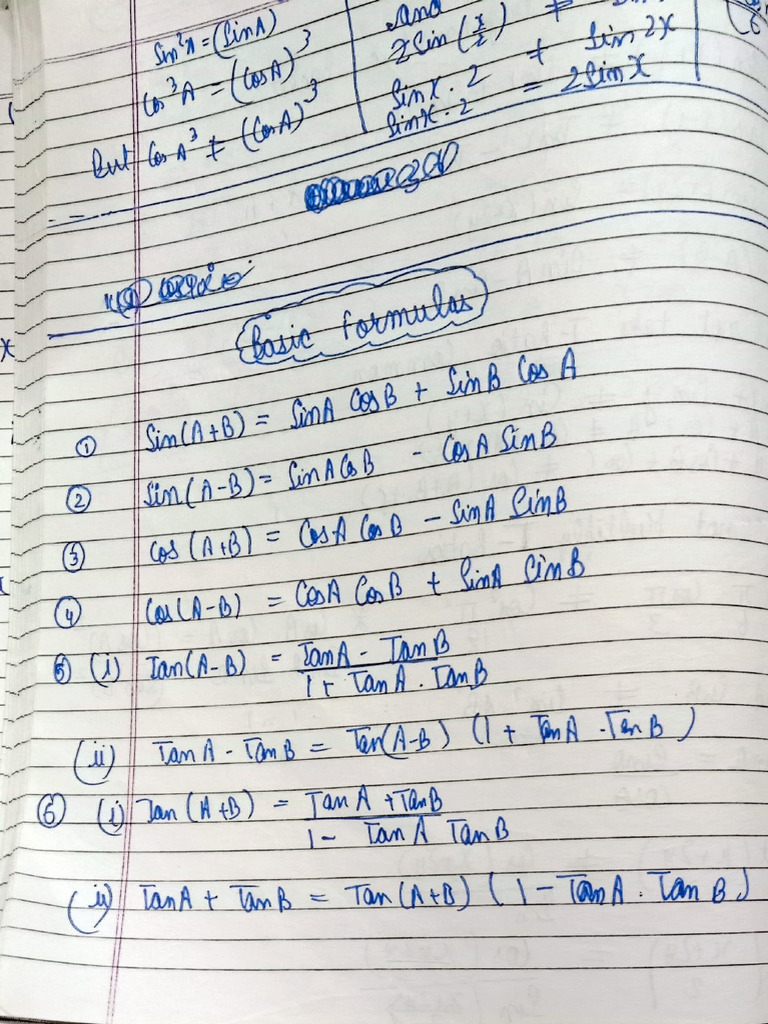 Sin²A = (SinA)
Cos³A = (CosA)³
But CosA³ ≠ (CosA)³
and
2Sin(x/2) ≠
Sinx · 2 ≠ Sin2x
Sinx · 2 = 2Sinx
Basic formulas
① Sin(A+B) = SinA CosB + SinB CosA
② Sin(A-B) = SinA CosB - CosA SinB
③ Cos(A+B) = CosA CosB - SinA SinB
④ Cos(A-B) = CosA CosB + SinA SinB
⑤ (i) Tan(A-B) = (TanA - TanB)/(1 + TanA . TanB)
(ii) TanA - TanB = Tan(A-B) (1 + TanA . TanB)
⑥ (i) Tan(A+B) = (TanA + TanB)/(1 - TanA TanB)
(ii) TanA + TanB = Tan(A+B) (1 - TanA . TanB)